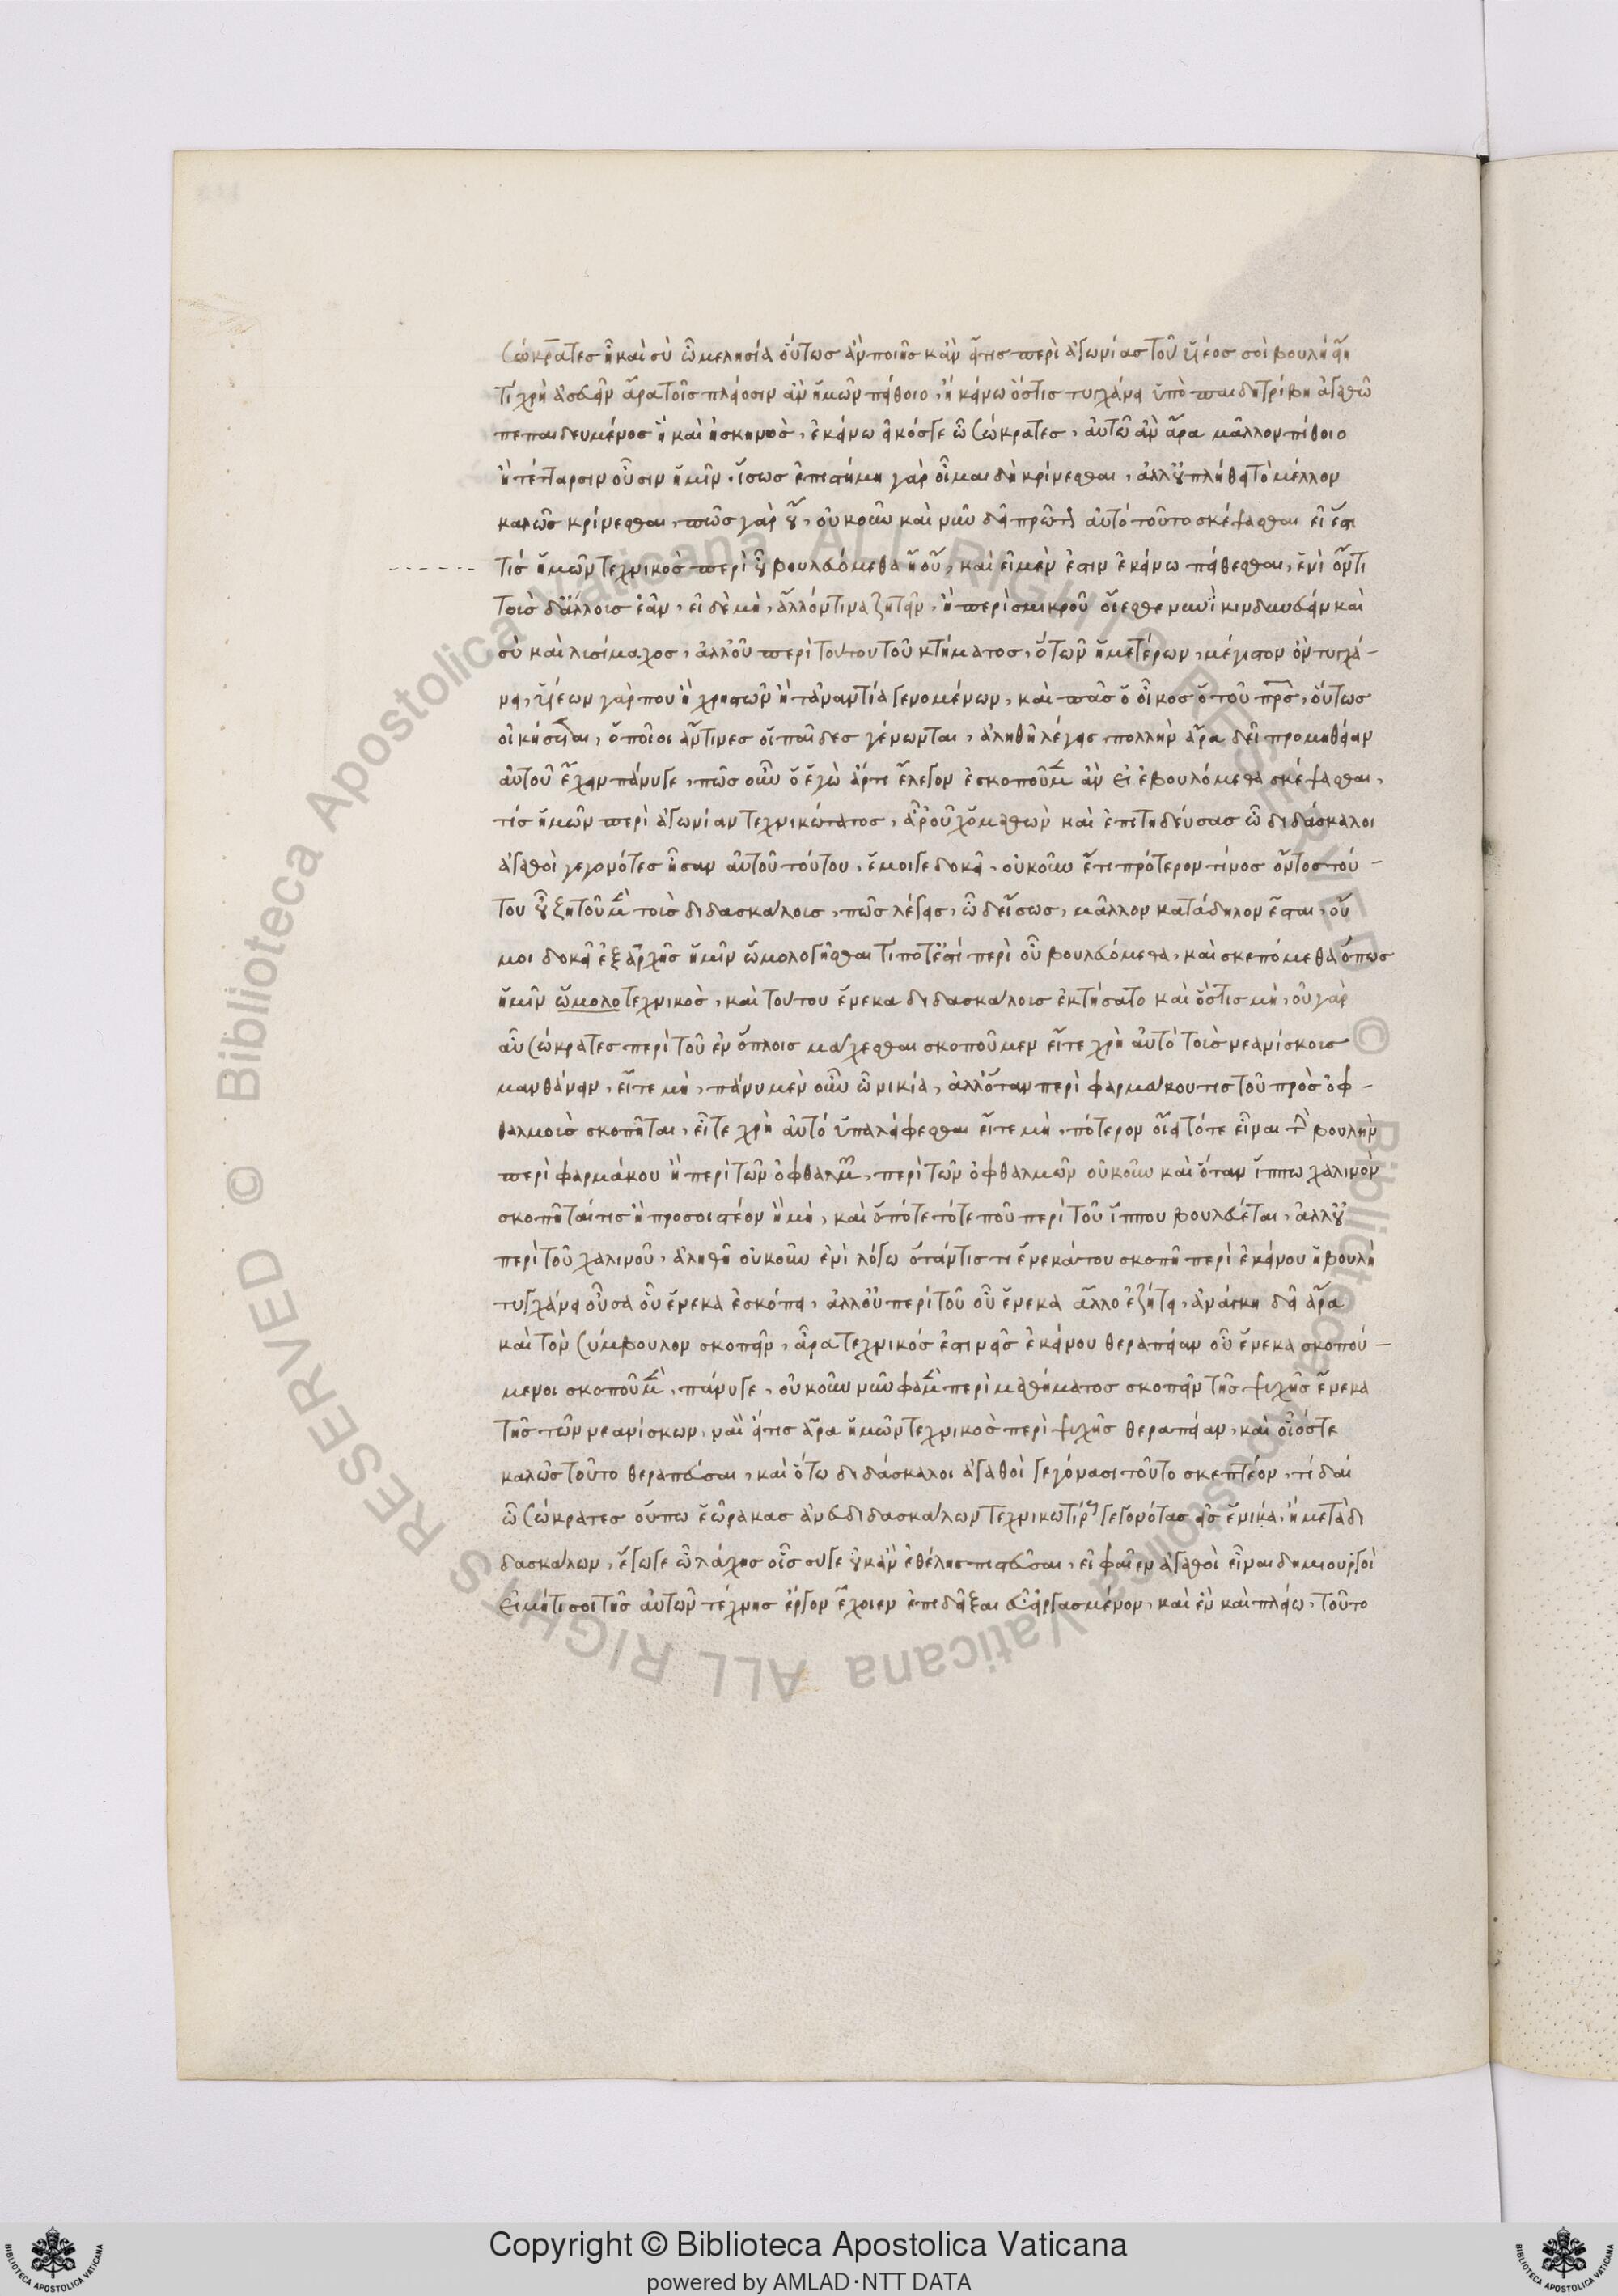 Σώκρατες ἦ καὶ σὺ ὦ μελησία οὕτως ἂν ποιῇς κἂν εἴ τις περὶ ἀγωνίας τοῦ ὑιέος σοὶ βουλὴ εἴη
τί χρὴ ἀσκεῖν ἆρα τοῖς πλείοσιν ἂν ἡμῶν πείθοιο, ἢ κείνω ὅστις τυγχάνει ὑπὸ παιδητρίβη ἀγαθῶ
πεπαιδευμένος ἢ καὶ ἠσκηκὸς, ἐκείνω εἰκόσγε ὦ Σώκρατες, αὐτῶ ἂν ἆρα μᾶλλον πίθοιο
ἢ τέτταρσιν οὖσιν ἡμῖν, ἴσως ἐπιστήμη γὰρ οἶμαι δὴ κρίνεσθαι, ἀλλ' οὐ πλήθει τὸ μέλλον
καλῶς κρίνεσθαι, πῶς γὰρ οὐ, οὐκοῦν καὶ νῦν δεῖ πρῶτον αὐτό τοῦτο σκέψασθαι εἰ ἔστι
τίς ἡμῶν τεχνικὸς περὶ οὗ βουλευόμεθα ἢ οὔ, καὶ εἰ μὲν ἐστιν ἐκείνω πείθεσθαι, ἑνὶ ὄντι
τοὺς δ' ἄλλοις ἐᾶν, εἰ δὲ μὴ, ἄλλόν τινα ζητεῖν, ἢ περὶ σμικροῦ οἴεσθε νυνῒ κινδυνεύειν καὶ
σὺ καὶ λισίμαχος, ἀλλ' οὐ περὶ τούτου τοῦ κτήματος, ὃ τῶν ἡμετέρων, μέγιστον ὂν τυγχά-
νει, ὑιέων γάρ που ἢ χρηστῶν ἢ τἀναντία γενομένων, καὶ πᾶς ὁ οἶκος ὁ τοῦ πρς, οὕτως
οἰκήσεται, ὁποῖοι ἄν τινες οἱ παῖδες γένωνται, ἀληθῆ λέγεις, πολλὴν ἄρα δεῖ προμηθείαν
αὐτοῦ ἔχειν πάνυγε, πῶς οὖν ὃ ἐγὼ ἄρτι ἔλεγον ἐσκοποῦμεν ἂν εἰ ἐβουλόμεθα σκέψασθαι,
τίς ἡμῶν περὶ ἀγωνίαν τεχνικώτατος, ἆρ' οὐχ ὃ μαθὼν καὶ ἐπιτηδεύσας ὧ διδάσκαλοι
ἀγαθοὶ γεγονότες ἦσαν αὐτοῦ τούτου, ἔμοιγε δοκεῖ, οὐκοῦν ἔτι πρότερον τίνος ὄντος τού-
του οὗ ζητοῦμεν τοὺς διδασκάλοις, πῶς λέγεις, ὧδε ἴσως, μᾶλλον κατάδηλον ἔσται, οὔ
μοι δοκεῖ ἐξ ἀρχῆς ἡμῖν ὡμολογῆσθαι τί ποτ' ἐστὶ περὶ οὗ βουλευόμεθα, καὶ σκεπόμεθα ὅπως
ἡμῖν ὡμολο τεχνικὸς, καὶ τούτου ἕνεκα διδασκάλοις ἐκτήσατο καὶ ὅστις μὴ, οὐ γὰρ
αὖ Σώκρατες περὶ τοῦ ἐν ὅπλοις μάχεσθαι σκοποῦμεν εἴτε χρὴ αὐτό τοὺς νεανίσκοις
μανθάνειν, εἴτε μή, πάνυ μὲν οὖν ὦ νικία, ἀλλ' ὅταν περὶ φαρμάκου τις τοῦ πρὸς ὀφ-
θαλμοὺς σκοπῆται, εἴτε χρὴ αὐτό ὑπαλείφεσθαι εἴτε μή, πότερον οἴει τότε εἶναι τὴν βουλὴν
περὶ φαρμάκου ἢ περὶ τῶν ὀφθαλμῶν, περὶ τῶν ὀφθαλμῶν οὐκοῦν καὶ ὅταν ἵππω χαλινὸν
σκοπῆταί τις ἢ προσοιστέον ἢ μή, καὶ ὁπότε τότε που περὶ τοῦ ἵππου βουλεύεται, ἀλλ' οὐ
περὶ τοῦ χαλινοῦ, ἀληθῆ οὐκοῦν ἑνὶ λόγω ὅτάν τις τι ἕνεκά του σκοπῆ περὶ ἐκείνου ἡ βουλὴ
τυγχάνει οὖσα οὗ ἕνεκα ἐσκόπει, ἀλλ' οὐ περὶ τοῦ οὗ ἕνεκα ἄλλο ἐζήτει, ἀνάγκη δεῖ ἄρα
καὶ τὸν Σύμβουλον σκοπεῖν, ἆρα τεχνικός ἐστιν εἰς ἐκείνου θεραπείαν οὗ ἕνεκα σκοπού-
μενοι σκοποῦμεν, πάνυγε, οὐκοῦν νῦν φαμὲν περὶ μαθήματος σκοπεῖν τῆς ψυχῆς ἕνεκα
τῆς τῶν νεανίσκων, ναὶ εἴ τις ἄρα ἡμῶν τεχνικὸς περὶ ψυχῆς θεραπείαν, καὶ οἷός τε
καλῶς τοῦτο θεραπεύσαι, καὶ ὅτω διδάσκαλοι ἀγαθοὶ γεγόνασι τοῦτο σκεπτέον, τί δαί
ὦ Σώκρατες οὔπω ἑώρακας ἄνευ διδασκάλων τεχνικωτέρους γεγονότας εἰς ἔνια, ἢ μετὰ δι
δασκάλων, ἔγωγε ὦ λάχης οἷς συγε οὐκ ἂν ἐθέλης πιστεῦσαι, εἰ φαῖεν ἀγαθοὶ εἶναι δημιουργοὶ
εἰ μή τι σοι τῆς αὐτῶν τέχνης ἔργον ἔχοιεν ἐπιδεῖξαι εὖ εἰργασμένον, καὶ ἓν καὶ πλείω, τοῦτο
© Biblioteca Apostolica Vaticana ALL RIGHTS RESERVED
© Biblioteca Apostolica Vaticana ALL RIGHTS RESERVED
Copyright © Biblioteca Apostolica Vaticana
powered by AMLAD·NTT DATA
BIBLIOTECA APOSTOLICA VATICANA
BIBLIOTECA APOSTOLICA VATICANA